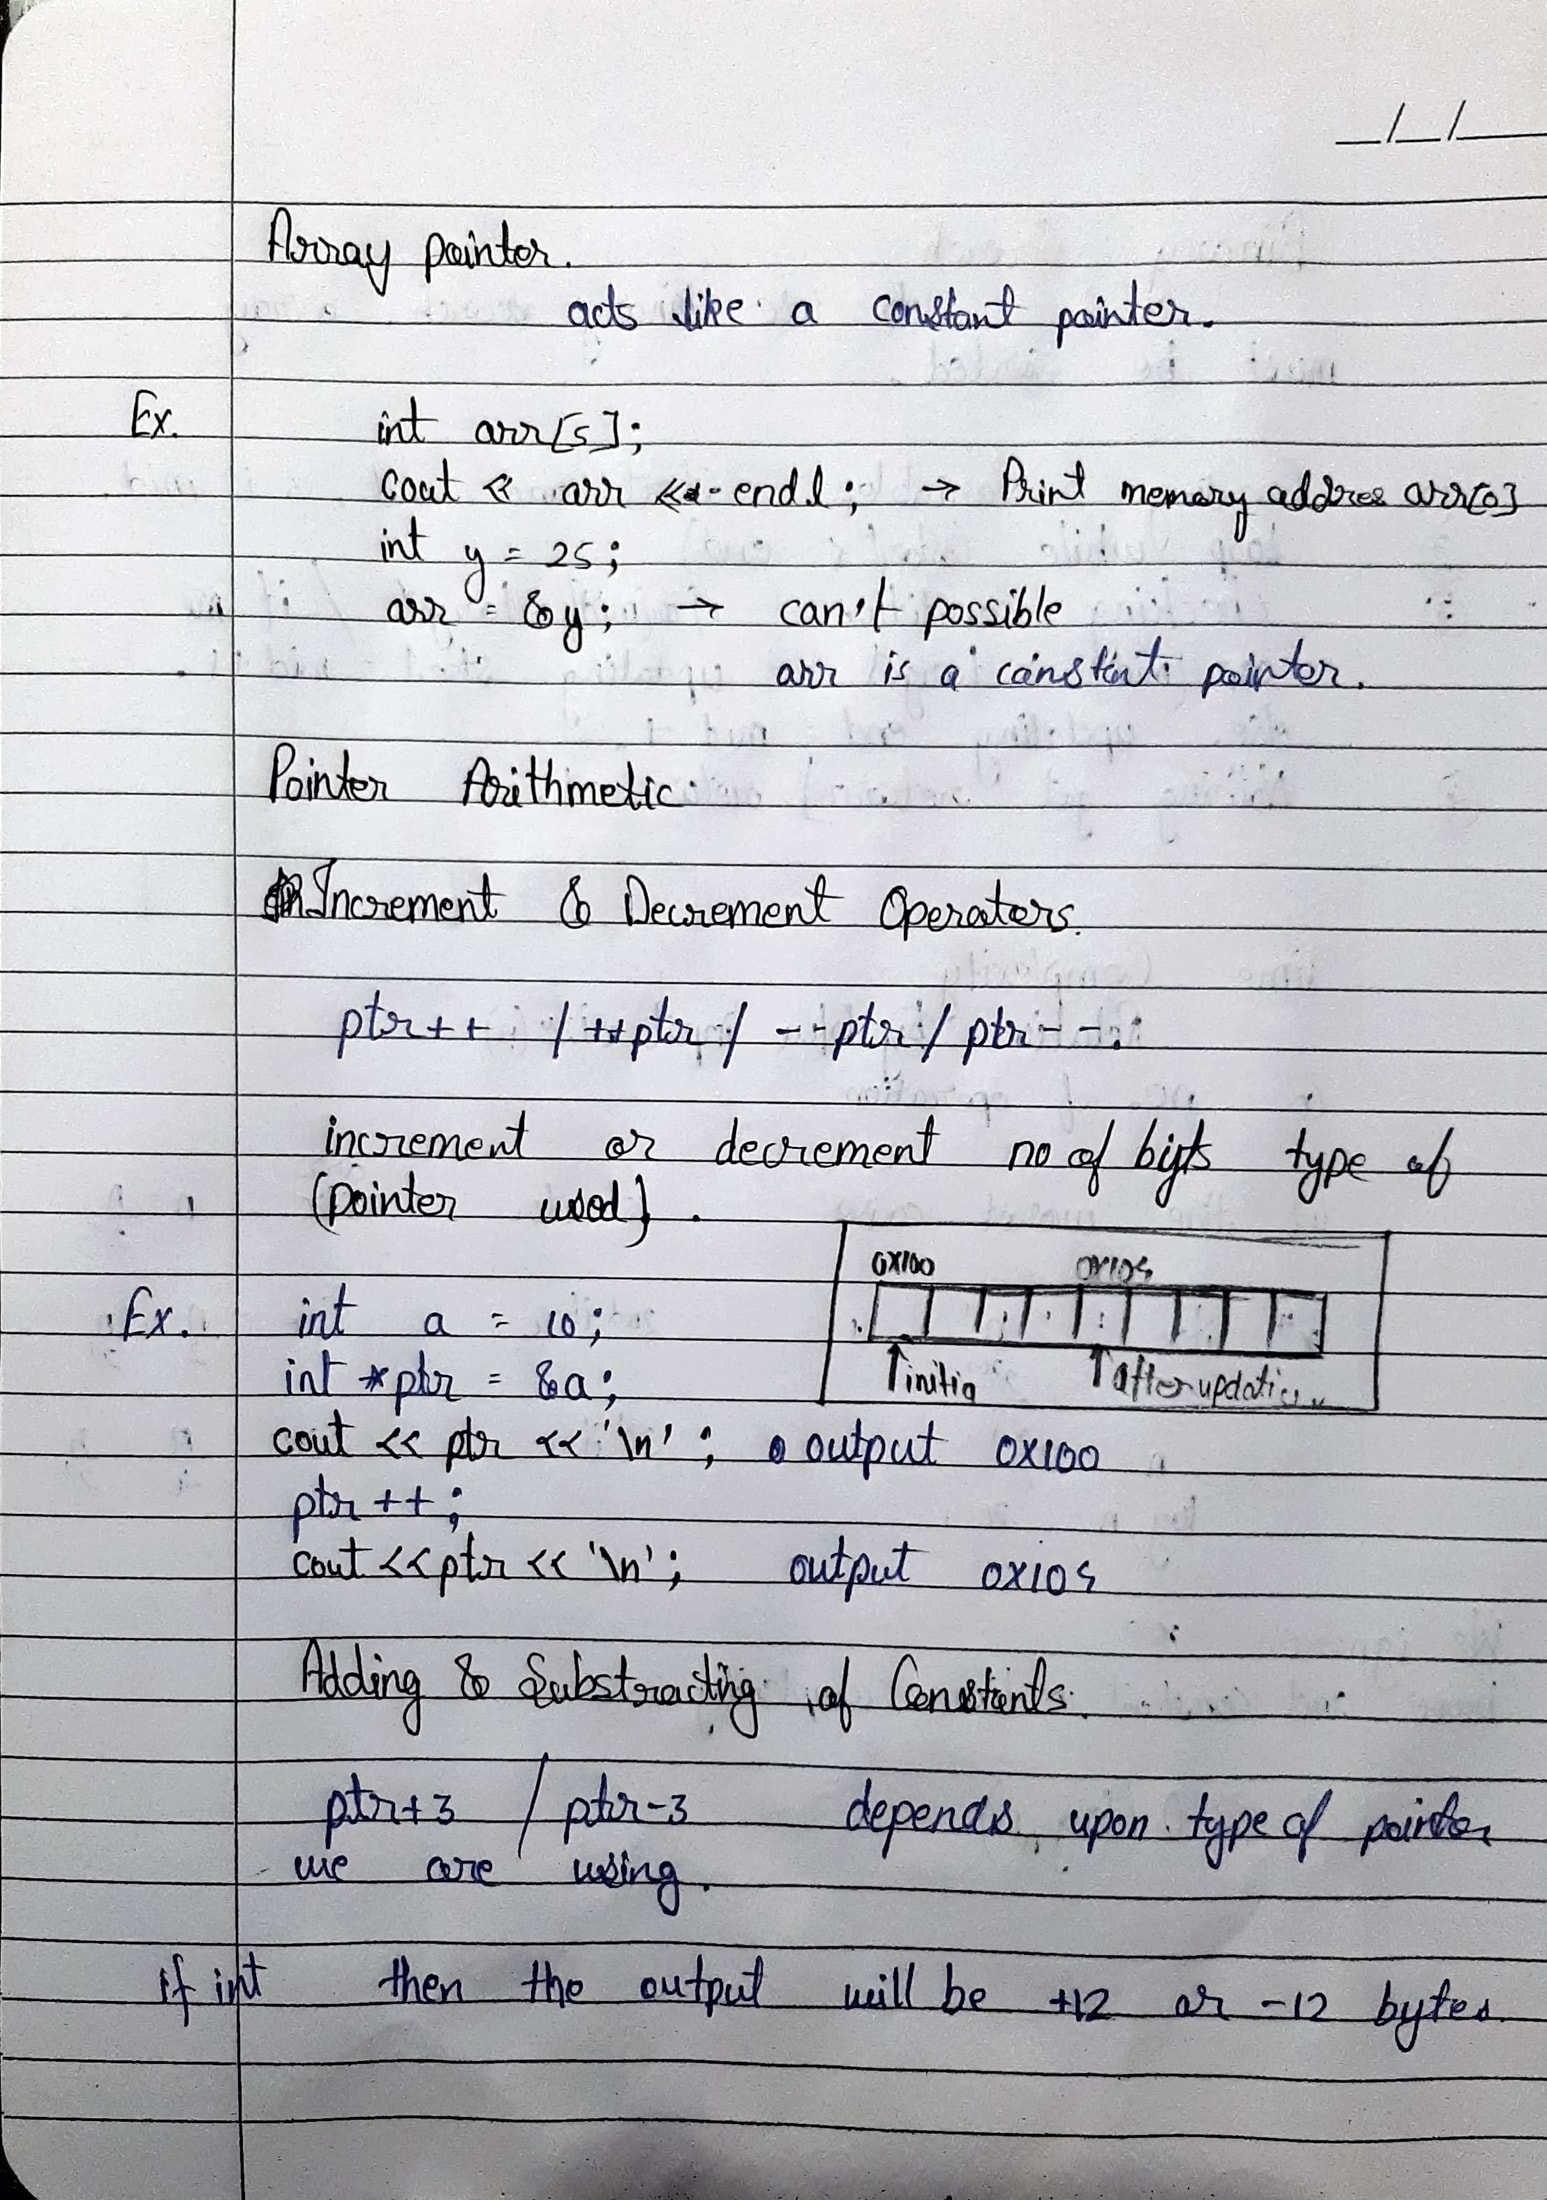 _/_/_
Array pointer.
acts like a constant pointer.
Ex. int arr[5];
cout << arr << endl; → Print memory addres arr[0]
int y = 25;
arr = &y; → can't possible
arr is a constant pointer.
Pointer Arithmetic
Increment & Decrement Operators.
ptr++ / ++ptr / --ptr / ptr--.
increment or decrement no of byts type of
(pointer used).
0x100 0x105
Ex. int a = 10;
↑initia ↑after updation
int *ptr = &a;
cout << ptr << '\n'; output 0x100
ptr++;
cout << ptr << '\n'; output 0x105
Adding & Substracting of Constants.
ptr+3 / ptr-3 depends upon type of pointer
we are using.
if int then the output will be +12 or -12 bytes.